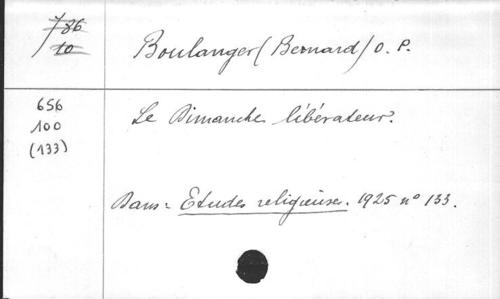 786
10
Boulanger (Bernard) O. P.
656
100
(133)
Le Dimanche libérateur.
Dans = Etudes religieuses. 1925 n° 133.